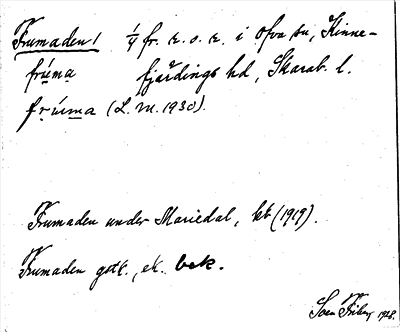 Frumaden / 1/4 fr. k. o. k. i Ova sn, Kinne-
frúma fjärdings hd, Skarab. l.
frúrma (L. M. 1930).
Frumaden under Mariedal, kb (1919).
Frumaden gotl., ek. bek.
Sven Friberg 1928.